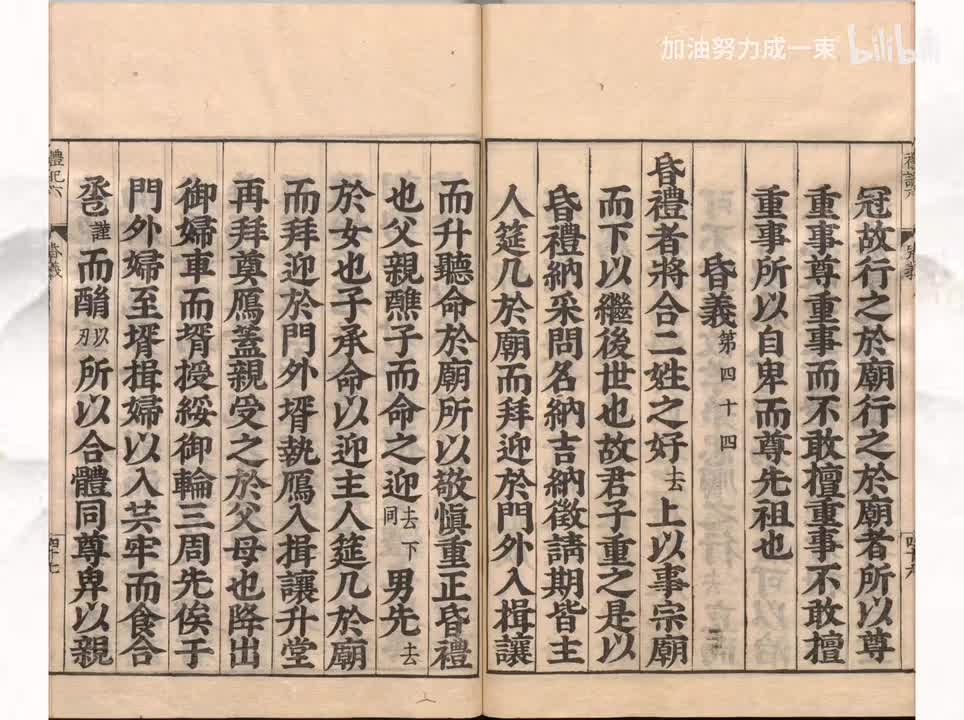 加油努力成一束 bilibili
冠故行之於廟行之於廟者所以尊
重事尊重事而不敢擅重事不敢擅
重事所以自卑而尊先祖也
昏義第四十四
昏禮者將合二姓之好去上以事宗廟
而下以繼後世也故君子重之是以
昏禮納采問名納吉納徵請期皆主
人筵几於廟而拜迎於門外入揖讓
而升聽命於廟所以敬慎重正昏禮
也父親醮子而命之迎去下同男先去
於女也子承命以迎主人筵几於廟
而拜迎於門外壻執鴈入揖讓升堂
再拜奠鴈蓋親受之於父母也降出
御婦車而壻授綏御輪三周先俟于
門外婦至壻揖婦以入共牢而食合
巹謹而酳以刃所以合體同尊卑以親
禮記六
昏義
四十七